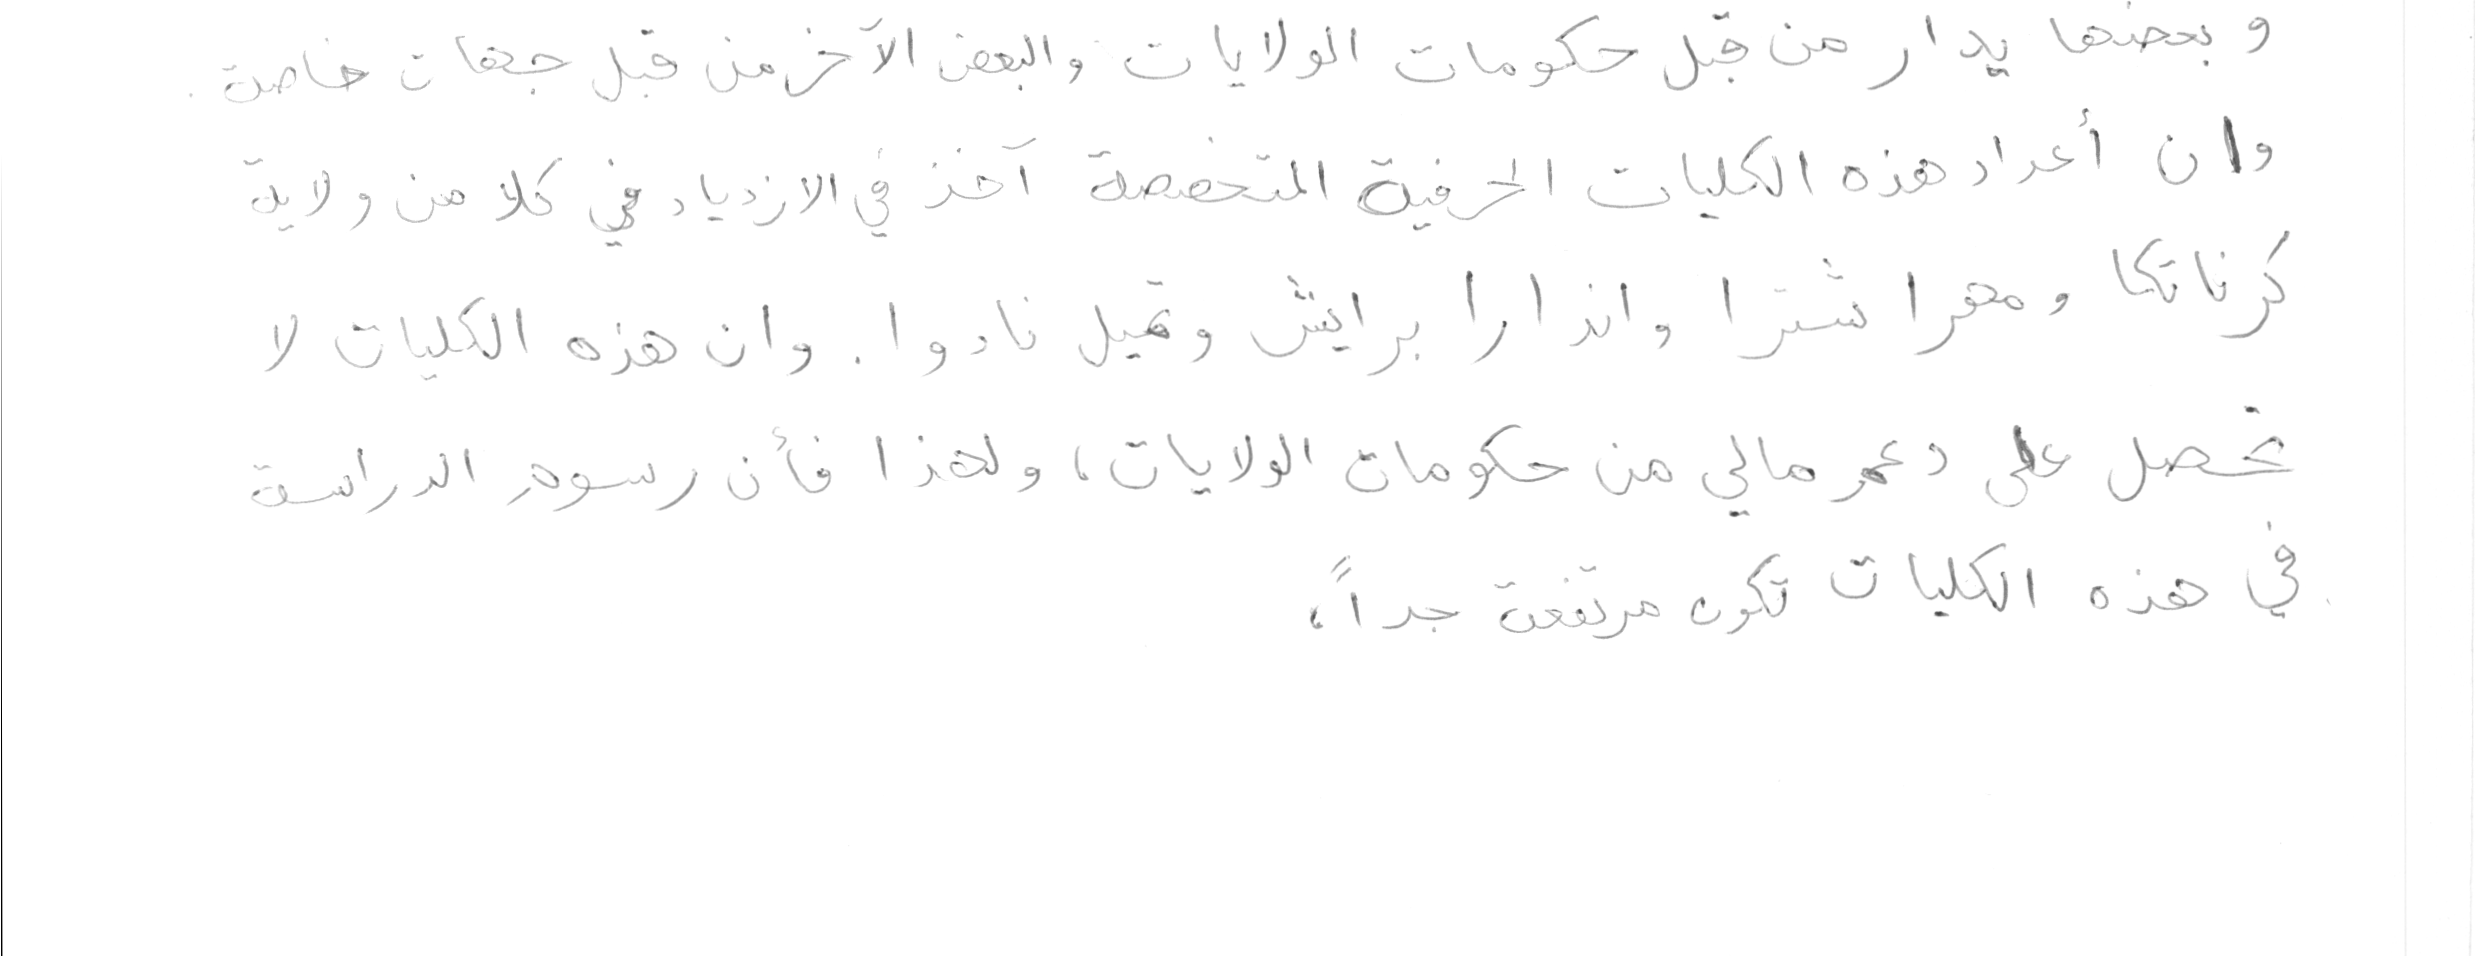 وبعضها يدار من قبل حكومات الولايات والبعض الآخر من قبل جهات خاصة.
وان أعداد هذه الكليات الحرفية المتخصصة آخذ في الازدياد في كلا من ولاية
كرناتكا ومهراشترا واندارا برايش وتميل نادوا. وان هذه الكليات لا
تحصل على دعم مالي من حكومات الولايات، ولهذا فأن رسوم الدراسة
في هذه الكليات تكون مرتفعة جداً،